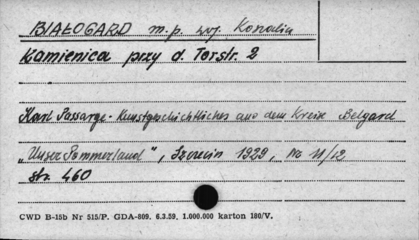 BIAŁOGARD m.p. woj. Koszalin
Kamienica przy d. Torstr. 2
Karl Passarge - Kunstgeschichtliches aus dem Kreise Belgard
„Unser Pommerland", Szczecin 1929, No 11/12
str. 460
CWD B-15b Nr 515/P. GDA-809. 6.3.59. 1.000.000 karton 180/V.